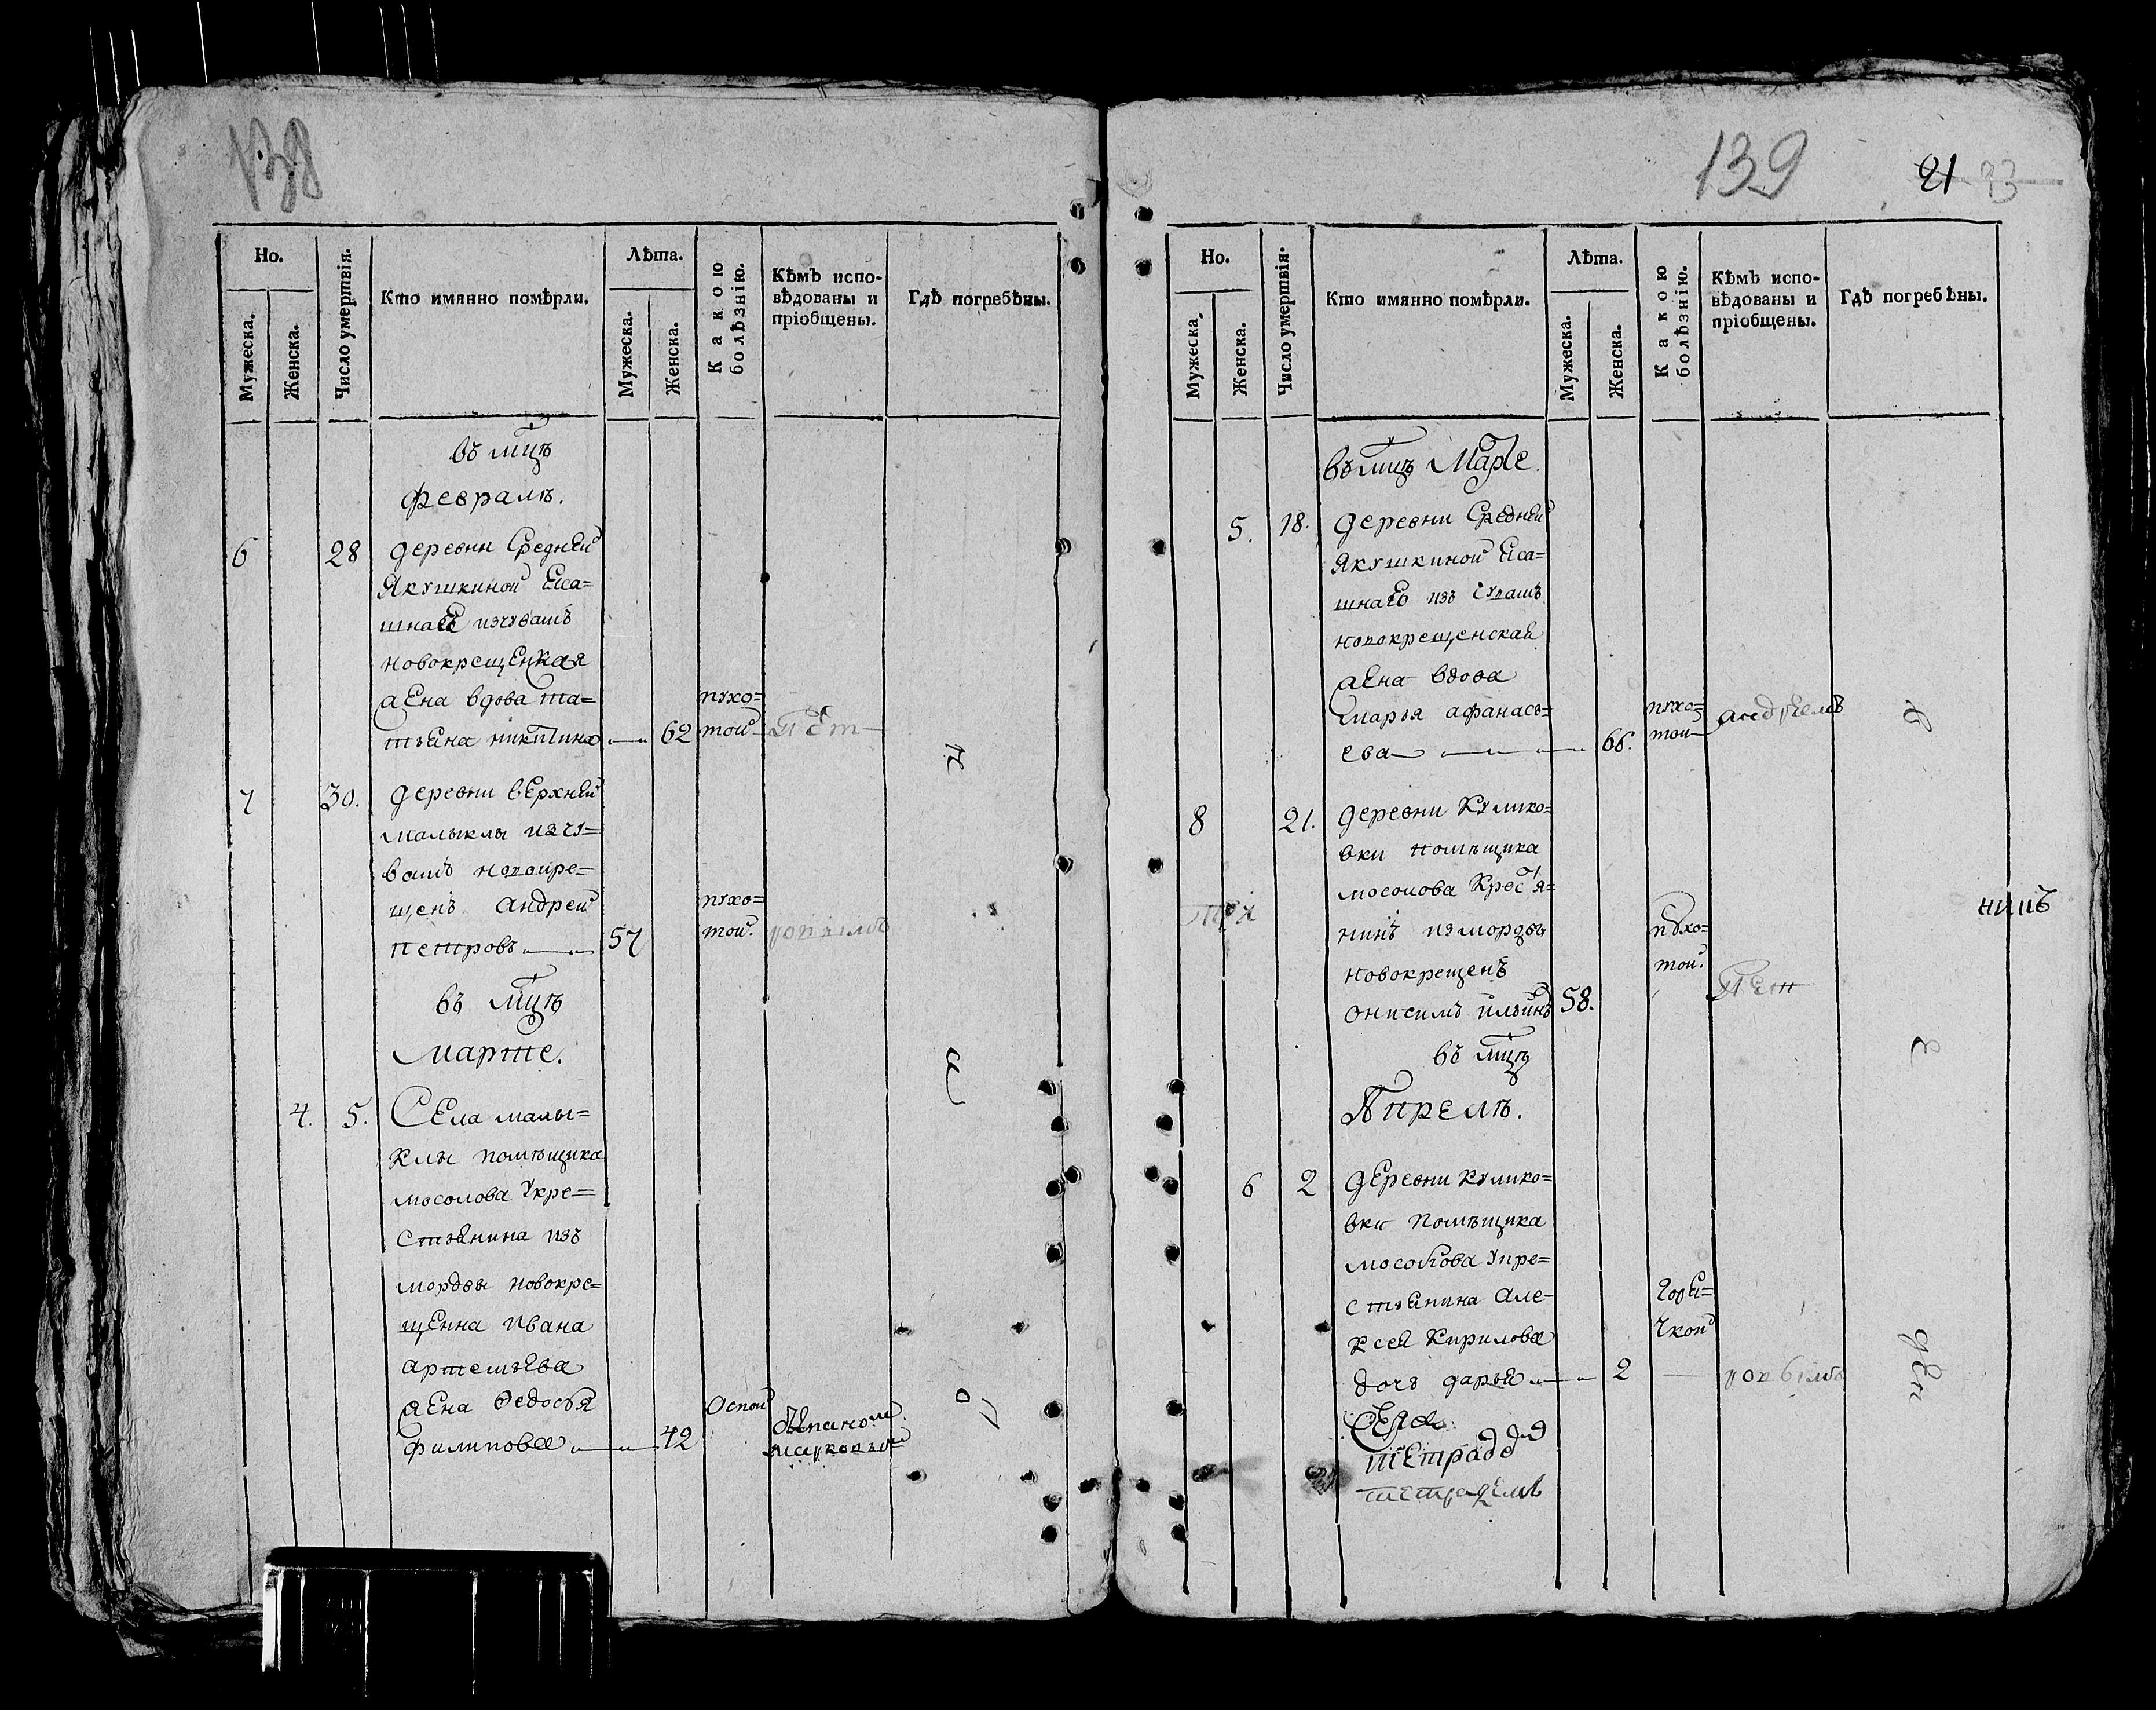 138
Но.
Мужеска.
Женска.
Число умертвія.
Кто имянно помѣрли.
Лѣта.
Мужеска.
Женска.
Какою болѣзнію.
Кѣмъ испо-
вѣдованы и
пріобщены.
Гдѣ погребѣны.
въ мцѣ
февралѣ.
6 28 деревни Средней
Якушкиной Еса=
шнаго изчувашъ
новокрещенкая
жена вдова та=
тьяна никитина 62 пухо=
той
7 30. деревни верхней
малыклы изчу=
вашъ новокре=
щенъ андрей
петровъ 57 пухо=
той.
въ мцѣ
марте.
4. 5. Села малы=
клы помѣщика
мосолова укре=
стьянина изъ
мордвы новокре=
щенна ивана
артемьева
жена Ѳедосья
филипова 42 Оспой
139
21 23
Но.
Мужеска.
Женска.
Число умертвія.
Кто имянно помѣрли.
Лѣта.
Мужеска.
Женска.
Какою болѣзнію.
Кѣмъ испо-
вѣдованы и
пріобщены.
Гдѣ погребѣны.
въ мцѣ Марте.
5. 18. деревни Средней
Якушкиной Еса=
шнаго изъ чувашъ
новокрещенская
жена вдова
марья афанась=
ева 66. пухо=
той
8 21. деревни Кулико=
вки помѣщика
мосолова Крестья=
нинъ измордвы
новокрещенъ
онисимъ ильинъ 58. пухо=
той.
нинъ
въ мцѣ
Апрелѣ.
6 2 деревни кулико=
вки помѣщика
мосолова укре=
стьянина але=
ксея Кирилова
дочь дарья 2 горя=
чкой
Сея
тетрадь